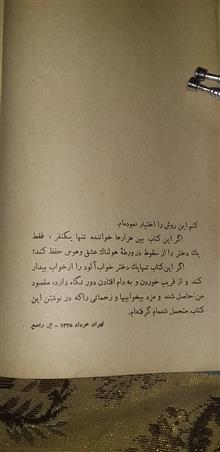 کنم این روش را اختیار نموده‌ام.
اگر این کتاب بین هزارها خواننده تنها یکنفر، فقط
یك دختر را از سقوط در ورطهٔ هولناك عشق وهوس حفظ کند؛
اگر این کتاب تنهایك دختر خواب آلود را ازخواب بیدار
کند و از فریب خوردن و به دام افتادن دور نگاه دارد، مقصود
من حاصل شده و مزد بیخوابیها و زحماتی راکه در نوشتن این
کتاب متحمل شده‌ام گرفته‌ام.
تهران خرداد ۱۳۳۵ - ع. راصع